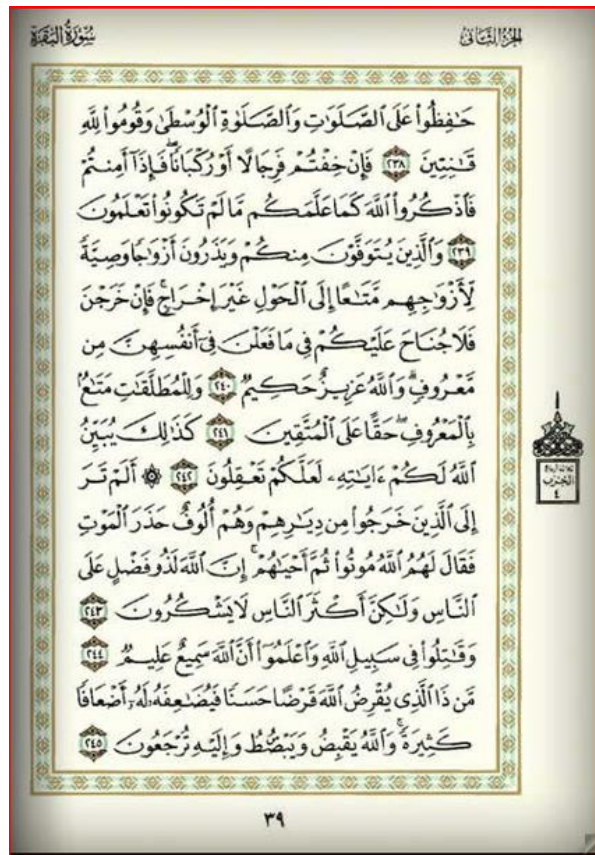 الجزء الثاني
سورة البقرة
حَٰفِظُوا۟ عَلَى ٱلصَّلَوَٰتِ وَٱلصَّلَوٰةِ ٱلْوُسْطَىٰ وَقُومُوا۟ لِلَّهِ
قَٰنِتِينَ ٢٣٨ فَإِنْ خِفْتُمْ فَرِجَالًا أَوْ رُكْبَانًا ۖ فَإِذَآ أَمِنتُمْ
فَٱذْكُرُوا۟ ٱللَّهَ كَمَا عَلَّمَكُم مَّا لَمْ تَكُونُوا۟ تَعْلَمُونَ
٢٣٩ وَٱلَّذِينَ يُتَوَفَّوْنَ مِنكُمْ وَيَذَرُونَ أَزْوَٰجًا وَصِيَّةً
لِّأَزْوَٰجِهِم مَّتَٰعًا إِلَى ٱلْحَوْلِ غَيْرَ إِخْرَاجٍ ۚ فَإِنْ خَرَجْنَ
فَلَا جُنَاحَ عَلَيْكُمْ فِى مَا فَعَلْنَ فِىٓ أَنفُسِهِنَّ مِن
مَّعْرُوفٍ ۗ وَٱللَّهُ عَزِيزٌ حَكِيمٌ ٢٤٠ وَلِلْمُطَلَّقَٰتِ مَتَٰعٌۢ
بِٱلْمَعْرُوفِ ۖ حَقًّا عَلَى ٱلْمُتَّقِينَ ٢٤١ كَذَٰلِكَ يُبَيِّنُ
ٱللَّهُ لَكُمْ ءَايَٰتِهِۦ لَعَلَّكُمْ تَعْقِلُونَ ٢٤٢ ۞ أَلَمْ تَرَ
إِلَى ٱلَّذِينَ خَرَجُوا۟ مِن دِيَٰرِهِمْ وَهُمْ أُلُوفٌ حَذَرَ ٱلْمَوْتِ
فَقَالَ لَهُمُ ٱللَّهُ مُوتُوا۟ ثُمَّ أَحْيَٰهُمْ ۚ إِنَّ ٱللَّهَ لَذُو فَضْلٍ عَلَى
ٱلنَّاسِ وَلَٰكِنَّ أَكْثَرَ ٱلنَّاسِ لَا يَشْكُرُونَ ٢٤٣
وَقَٰتِلُوا۟ فِى سَبِيلِ ٱللَّهِ وَٱعْلَمُوٓا۟ أَنَّ ٱللَّهَ سَمِيعٌ عَلِيمٌ ٢٤٤
مَّن ذَا ٱلَّذِى يُقْرِضُ ٱللَّهَ قَرْضًا حَسَنًا فَيُضَٰعِفَهُۥ لَهُۥٓ أَضْعَافًا
كَثِيرَةً ۚ وَٱللَّهُ يَقْبِضُ وَيَبْصُۜطُ وَإِلَيْهِ تُرْجَعُونَ ٢٤٥
ثلاثة أرباع
الحزب
٤
٣٩